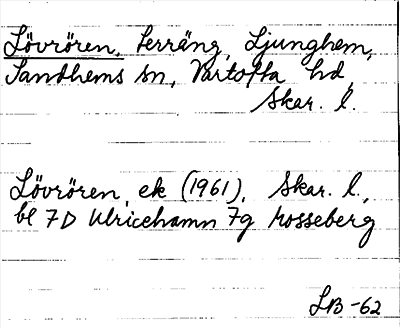 Lövrören, terräng, Ljunghem,
Sandhems sn, Vartofta hd,
Skar. l.
Lövrören, ek (1961), Skar. l.,
bl 7D Ulricehamn 7g Mosseberg
LB-62